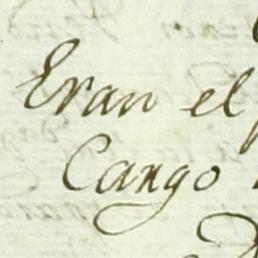 Eran el
Cargo